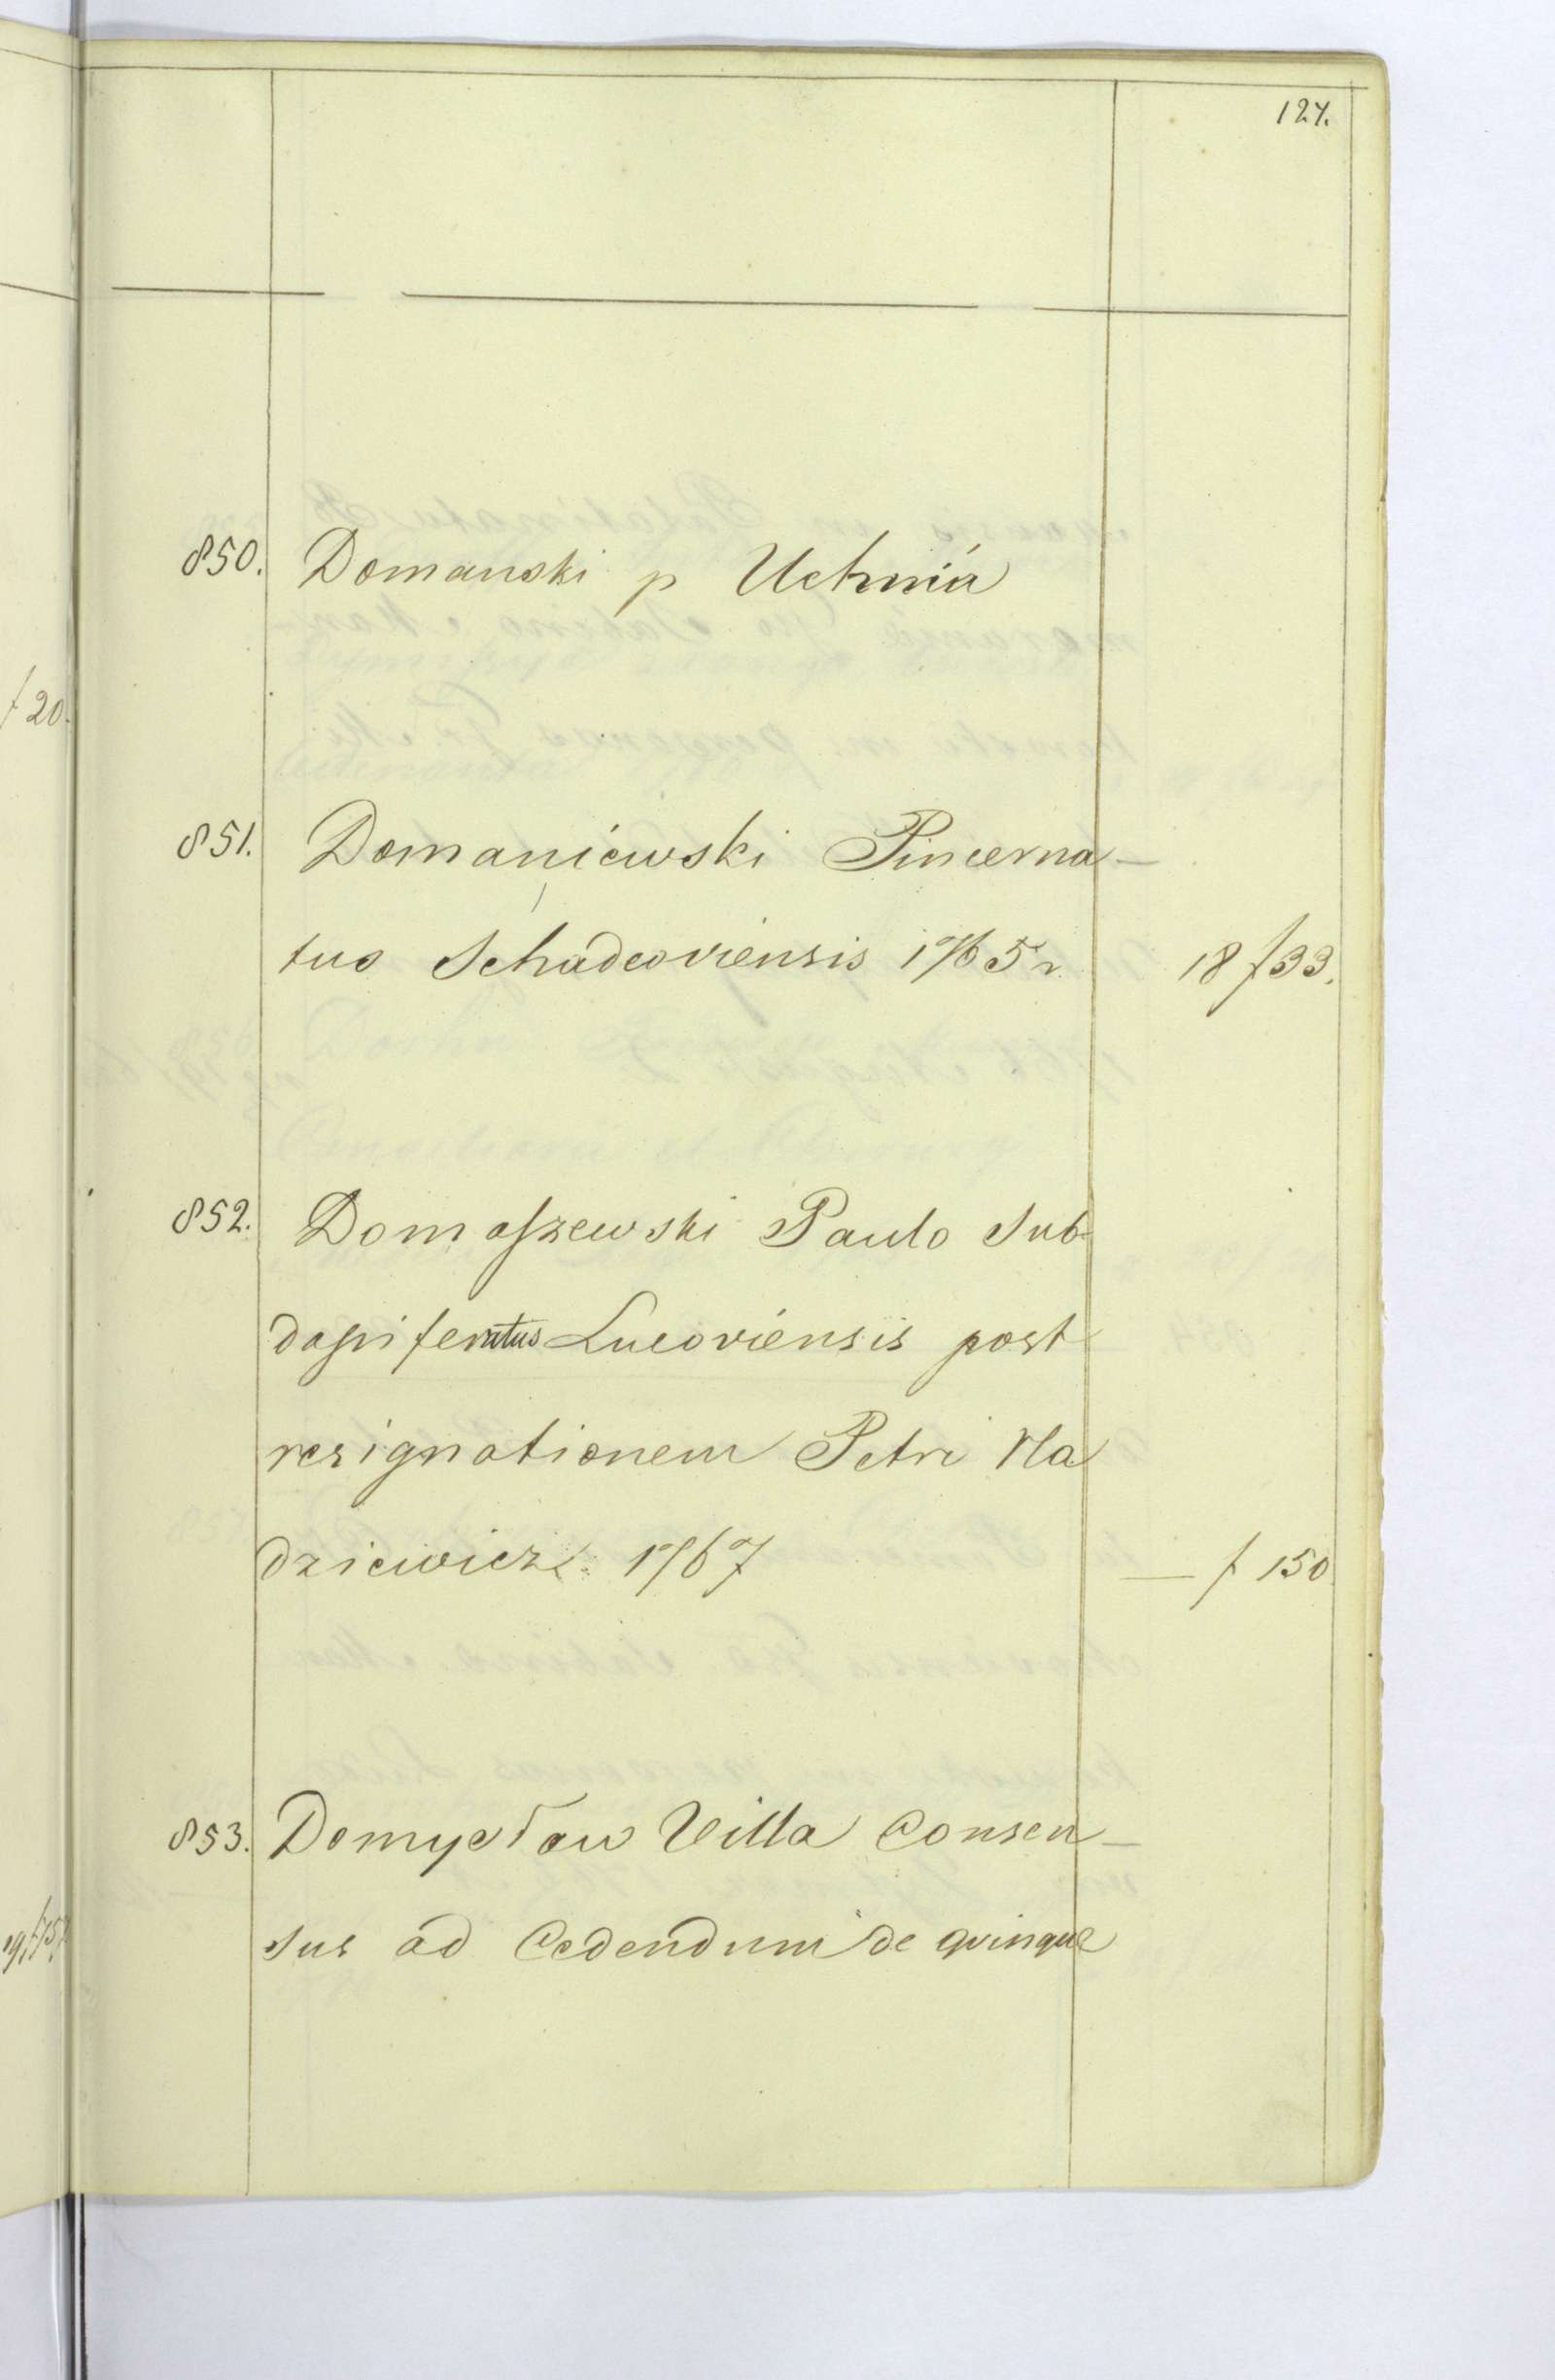 127.
850. Domanski p Uchnia
851. Domaniewski Pincerna-
tus Schadcoviensis 1765 r 18 f 33.
852. Domaszewski Paulo Sub-
dapiferatus Lucoviensis post
resignationem Petri Ha
dziewicz 1767 — f 150
853. Domysław Villa Consen-
sus ad Cedendum de quinque
f 20.